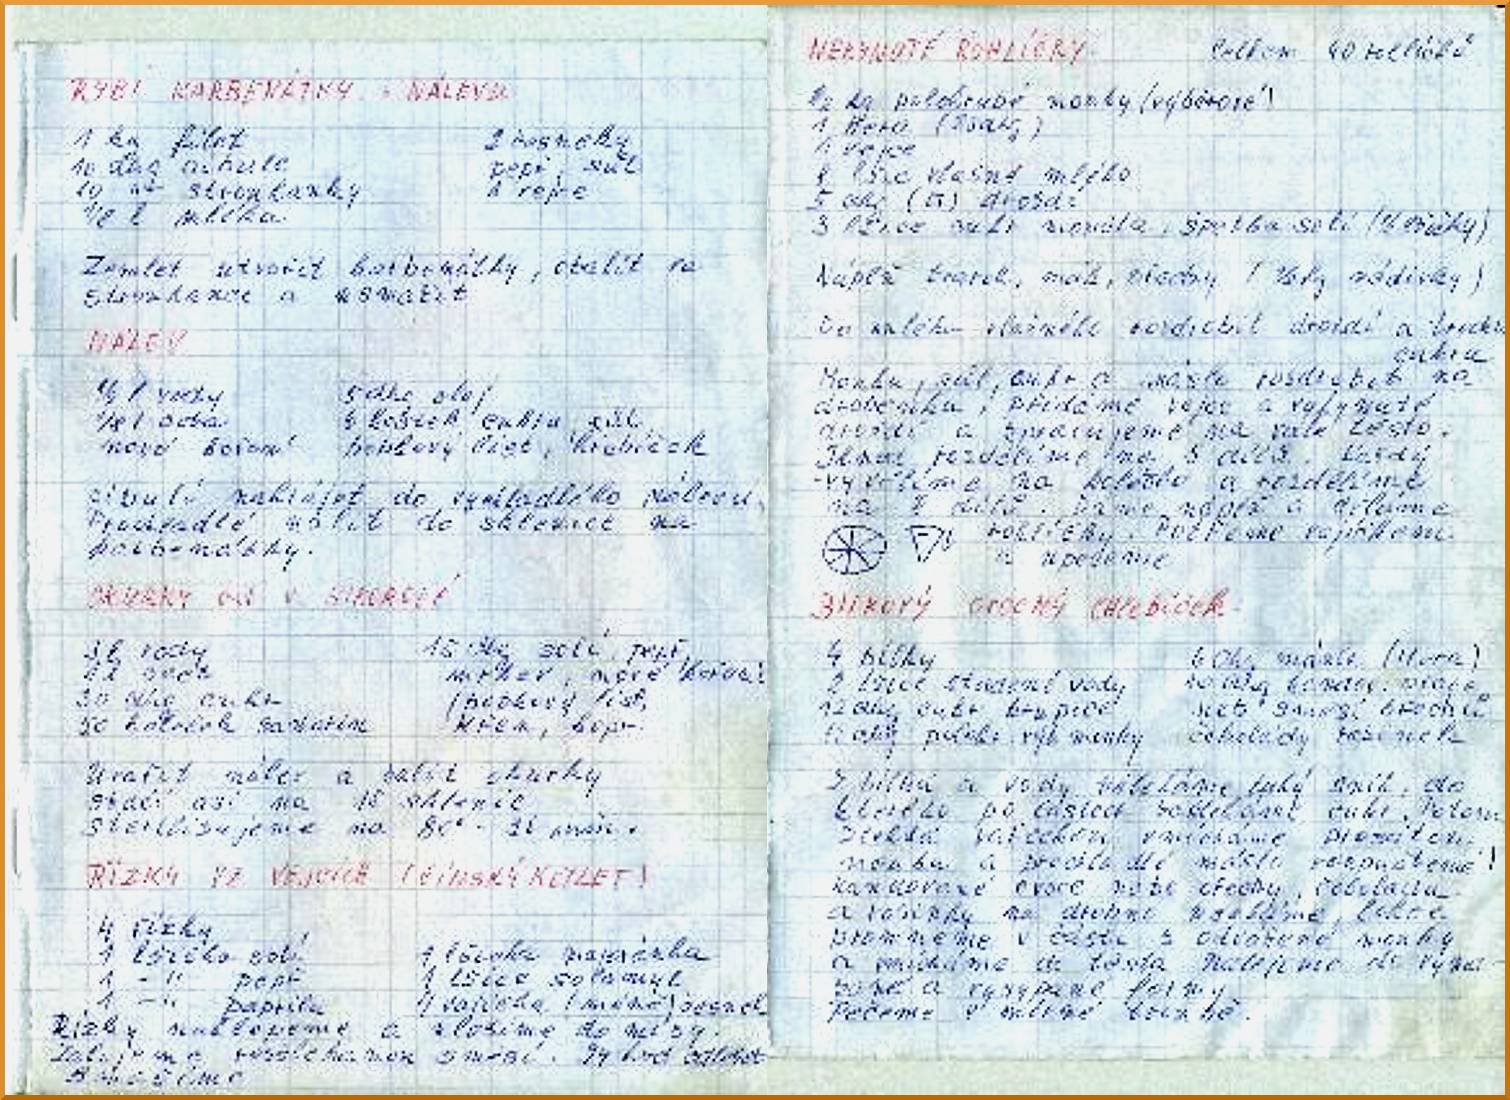 RYBÍ KARBENÁTKY V NÁLEVU
1 kg filet
10 dkg cibule
10 -"- strouhanky
1/8 l mléka
2 rohlíky
pepř, sůl
1 vejce
Zemlet utvořit karbenátky, obalit ve
strouhance a usmažit
NÁLEV
vody
1/8 l octa
nové koření
5 dkg olej
5 kostek cukru, sůl
bobkový list, hřebíček
cibuli nakrájet do vychladlého nálevu.
Prochladlé nalít do sklenice na
karbenátky.
OKURKY
3 l vody
1 l octa
30 dkg cukr
50 kostiček sacharin
15 dkg soli, pepř,
mrkev, nové koření
bobkový list,
křen, kopr.
Uvařit nálev a zalít okurky
stačí asi na 18 sklenic
Sterilizujeme na 80° - 20 min.
ŘÍZKY VE VEJCÍCH (ČÍNSKÝ KOTLET)
4 řízky
1 lžička soli
1 -"- pepř
1 -"- paprika
1 lžička majoránka
1 lžíce solamyl
4 vajíčka (méně) česnek
Řízky naklepeme a vložíme do mísy.
Zalijeme rozšlehanou směsí. 24 hod odležet
Smažíme
NEKYNUTÉ ROHLÍČKY Celkem 40 rohlíčků
1/2 kg polohrubé mouky (výběrové)
1 Hera
1 vejce
lžic vlažné mléko
5 dkg droždí
3 lžíce cukr moučka, špetka soli
Náplň tvaroh, mák, ořechy
Do mléka vlažného rozdrobit droždí a trochu
cukru
Mouku, sůl, cukr a máslo rozdrobit na
drobenku, přidáme vejce a vykynuté
droždí a zpracujeme na vále těsto.
rozdělíme na 5 dílů. Každý
vyválíme na kolečko a rozdělíme
na 8 dílů. Dáme náplň a děláme
rohlíčky. Potřeme vajíčkem
a upečeme
BÍLKOVÝ OVOCNÝ CHLEBÍČEK
4 bílky
2 lžíce studené vody
12 dkg cukr krupice
12 dkg polohr. výb. mouky
6 dkg máslo (Hera)
10 dkg kandov. ovoce
nebo směsi ořechů
čokolády rozinek
Z bílků a vody ušleháme tuhý sníh, do
kterého po částech zašleháme cukr. Potom
zlehka vařečkou vmícháme prosátou
mouku a prochladlé máslo rozpuštěné!
Kandované ovoce nebo ořechy, čokoládu
a rozinky na drobno nakrájíme, lehce
promneme v části z odvážené mouky
a vmícháme do těsta. Nalejeme do vyma-
zané a vysypané formy
Pečeme v mírné troubě.